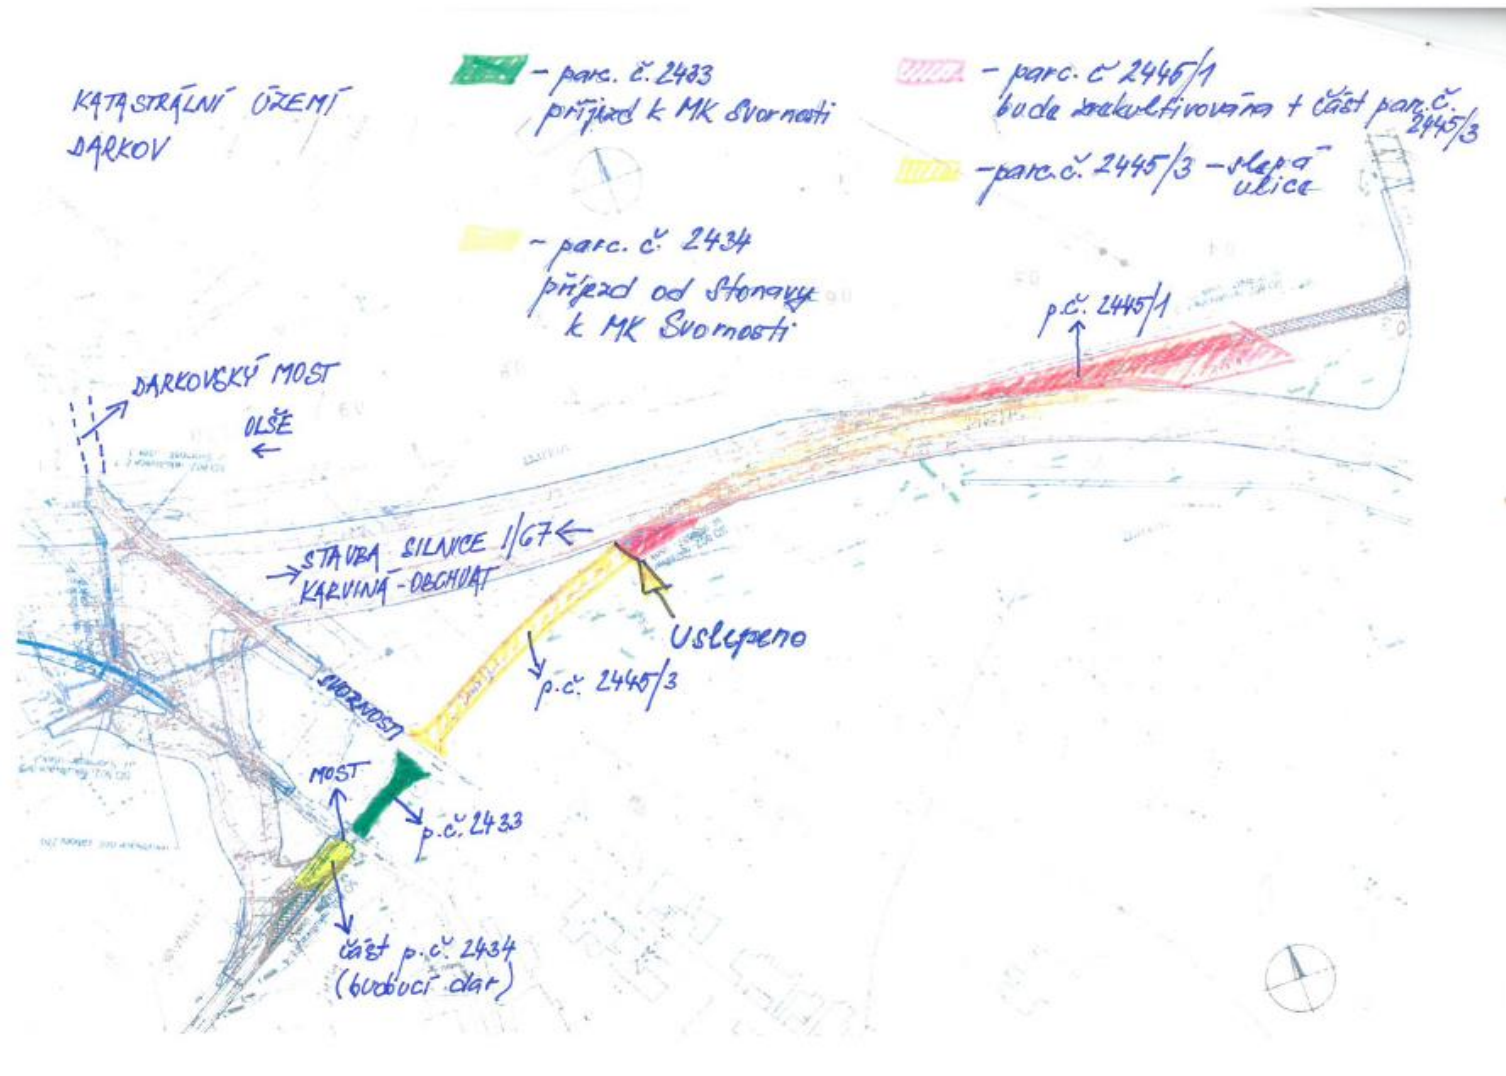 KATASTRÁLNÍ ÚZEMÍ
DARKOV
- parc. č. 2433
příjezd k MK Svornosti
- parc. č. 2434
příjezd od Stonavy
k MK Svornosti
- parc. č 2445/1
bude zrekultivována + část parc. č.
2445/3
- parc. č. 2445/3 - slepá
ulice
p.č. 2445/1
DARKOVSKÝ MOST
OLŠE
STAVBA SILNICE I/67
KARVINÁ - OBCHVAT
Uslepeno
p.č. 2445/3
SVORNOSTI
MOST
p.č. 2433
část p.č. 2434
(budoucí dar)